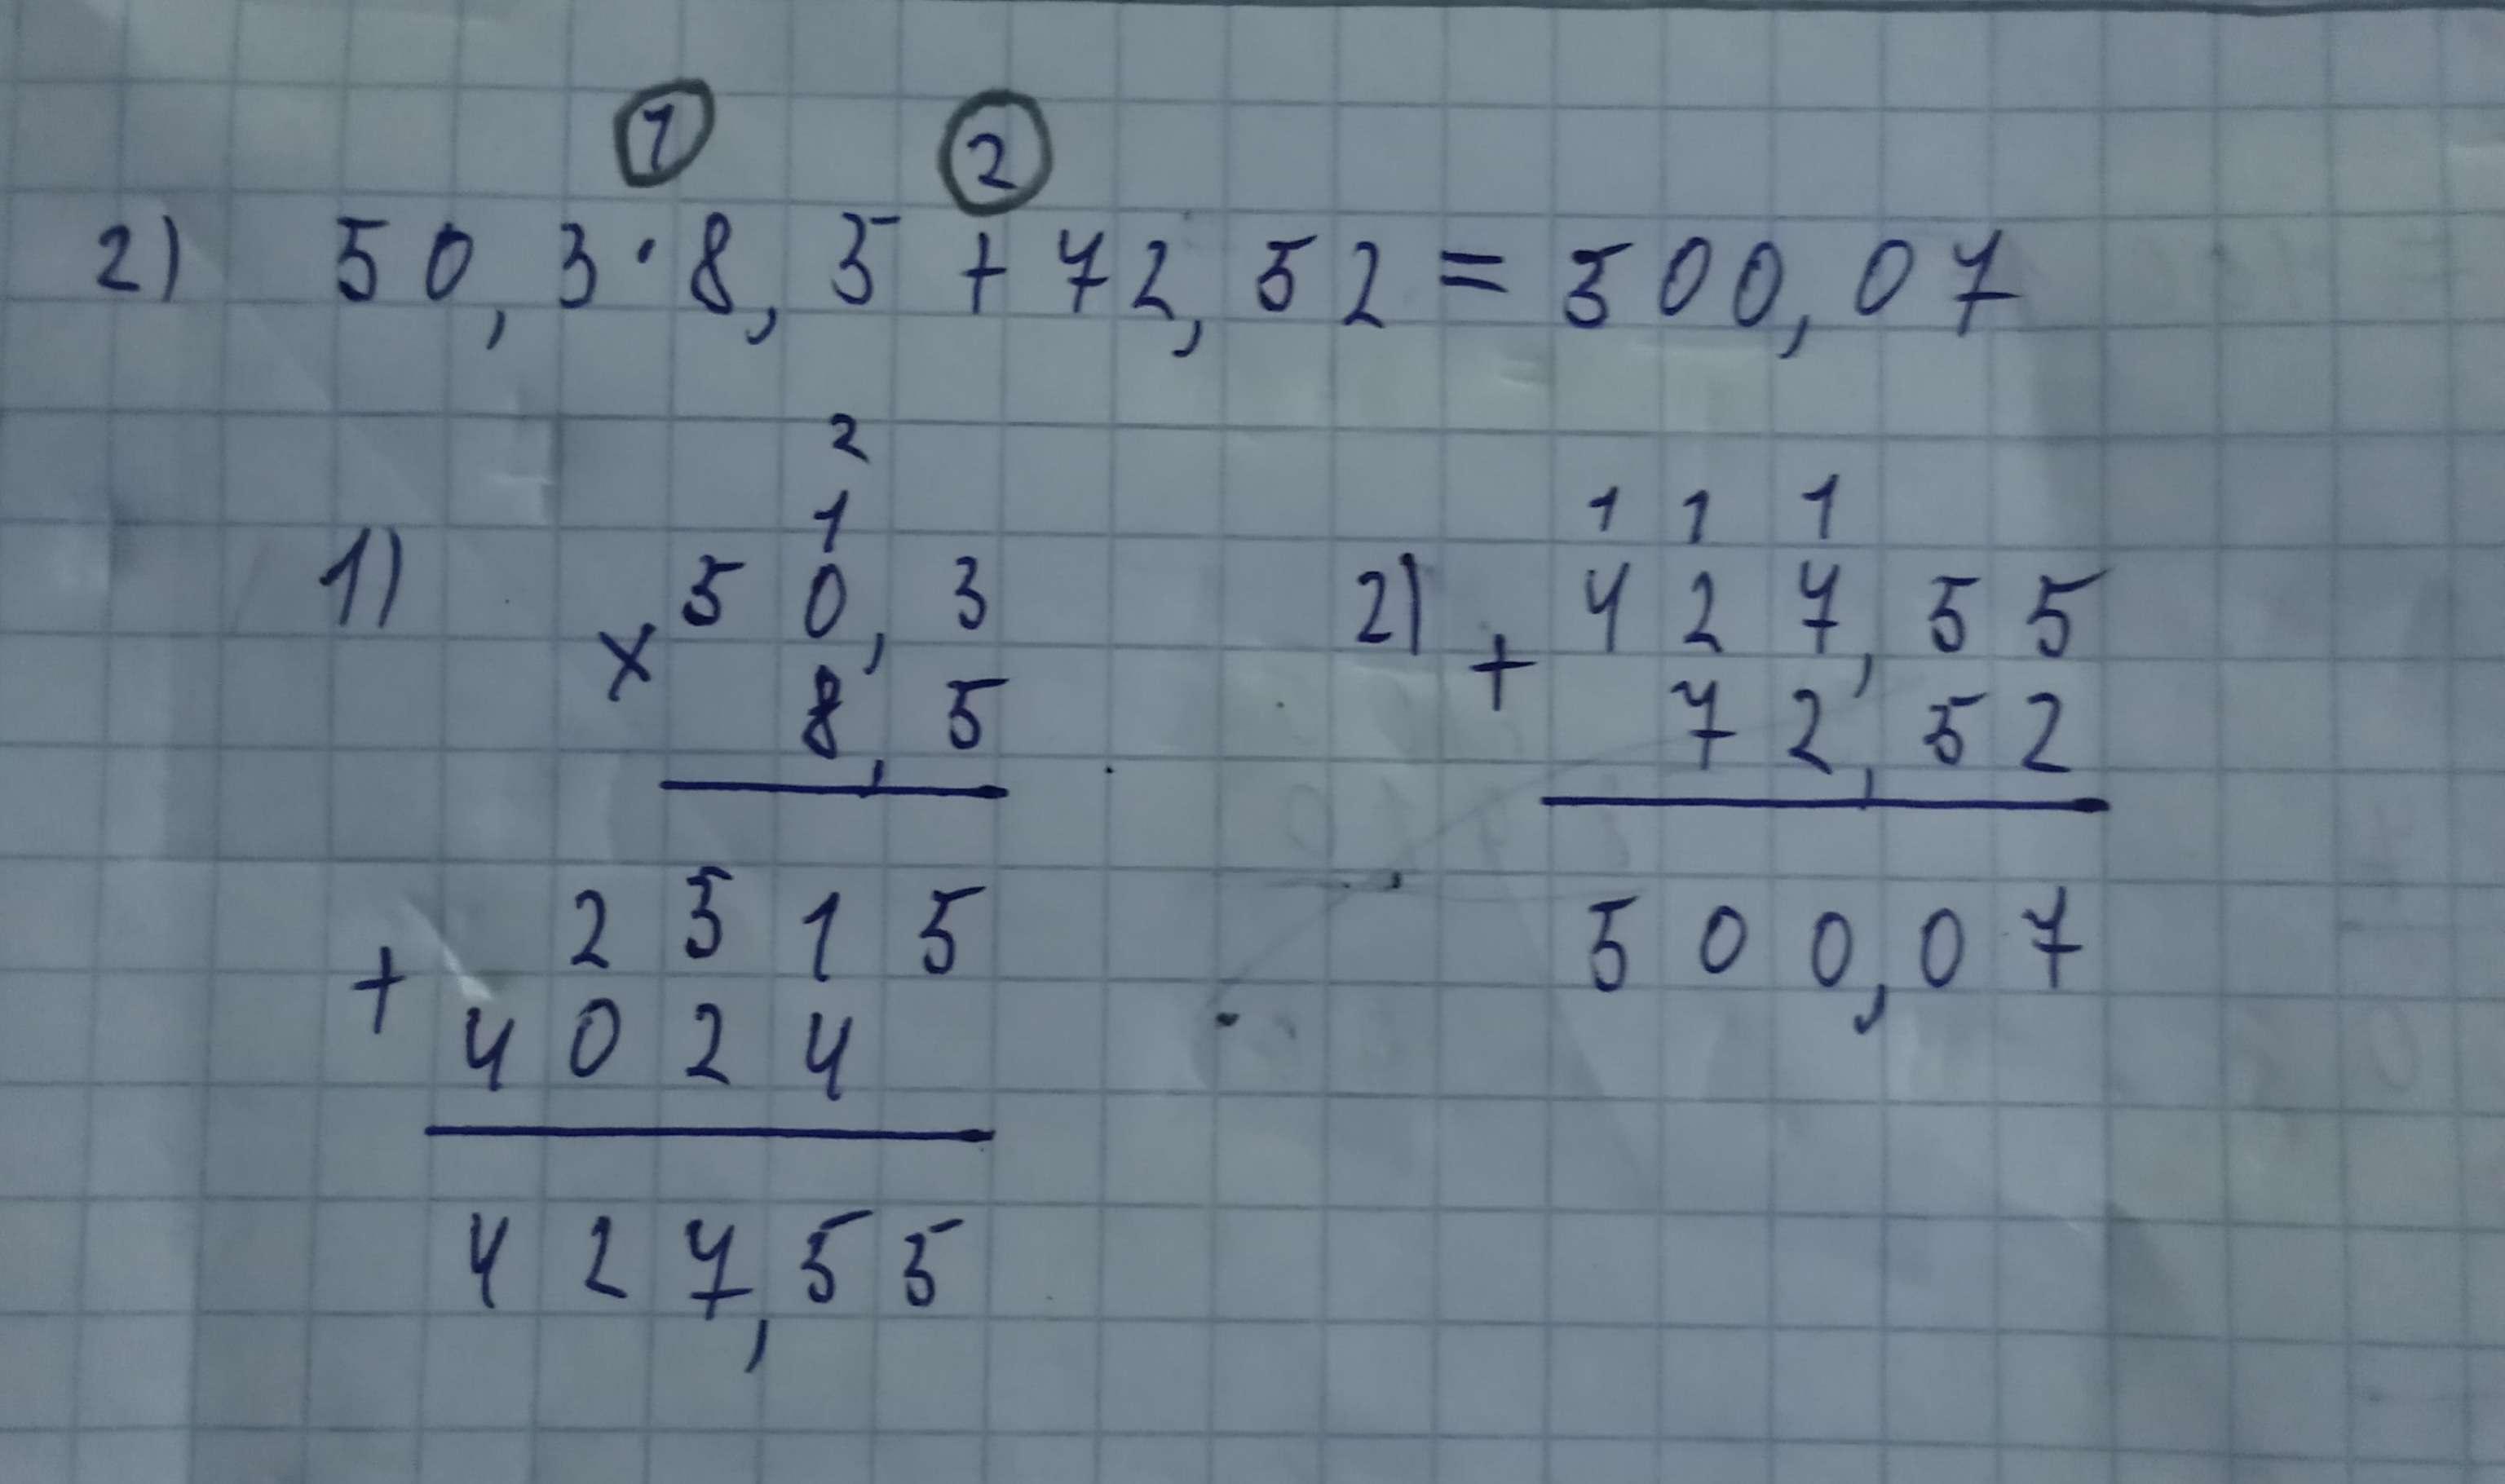 ① ②
2) 50,3·8,5+72,52=500,07
2
1
1) 50,3
× 8,5
2515
+ 4024
427,55
1 1 1
2) 427,55
+ 72,52
500,07